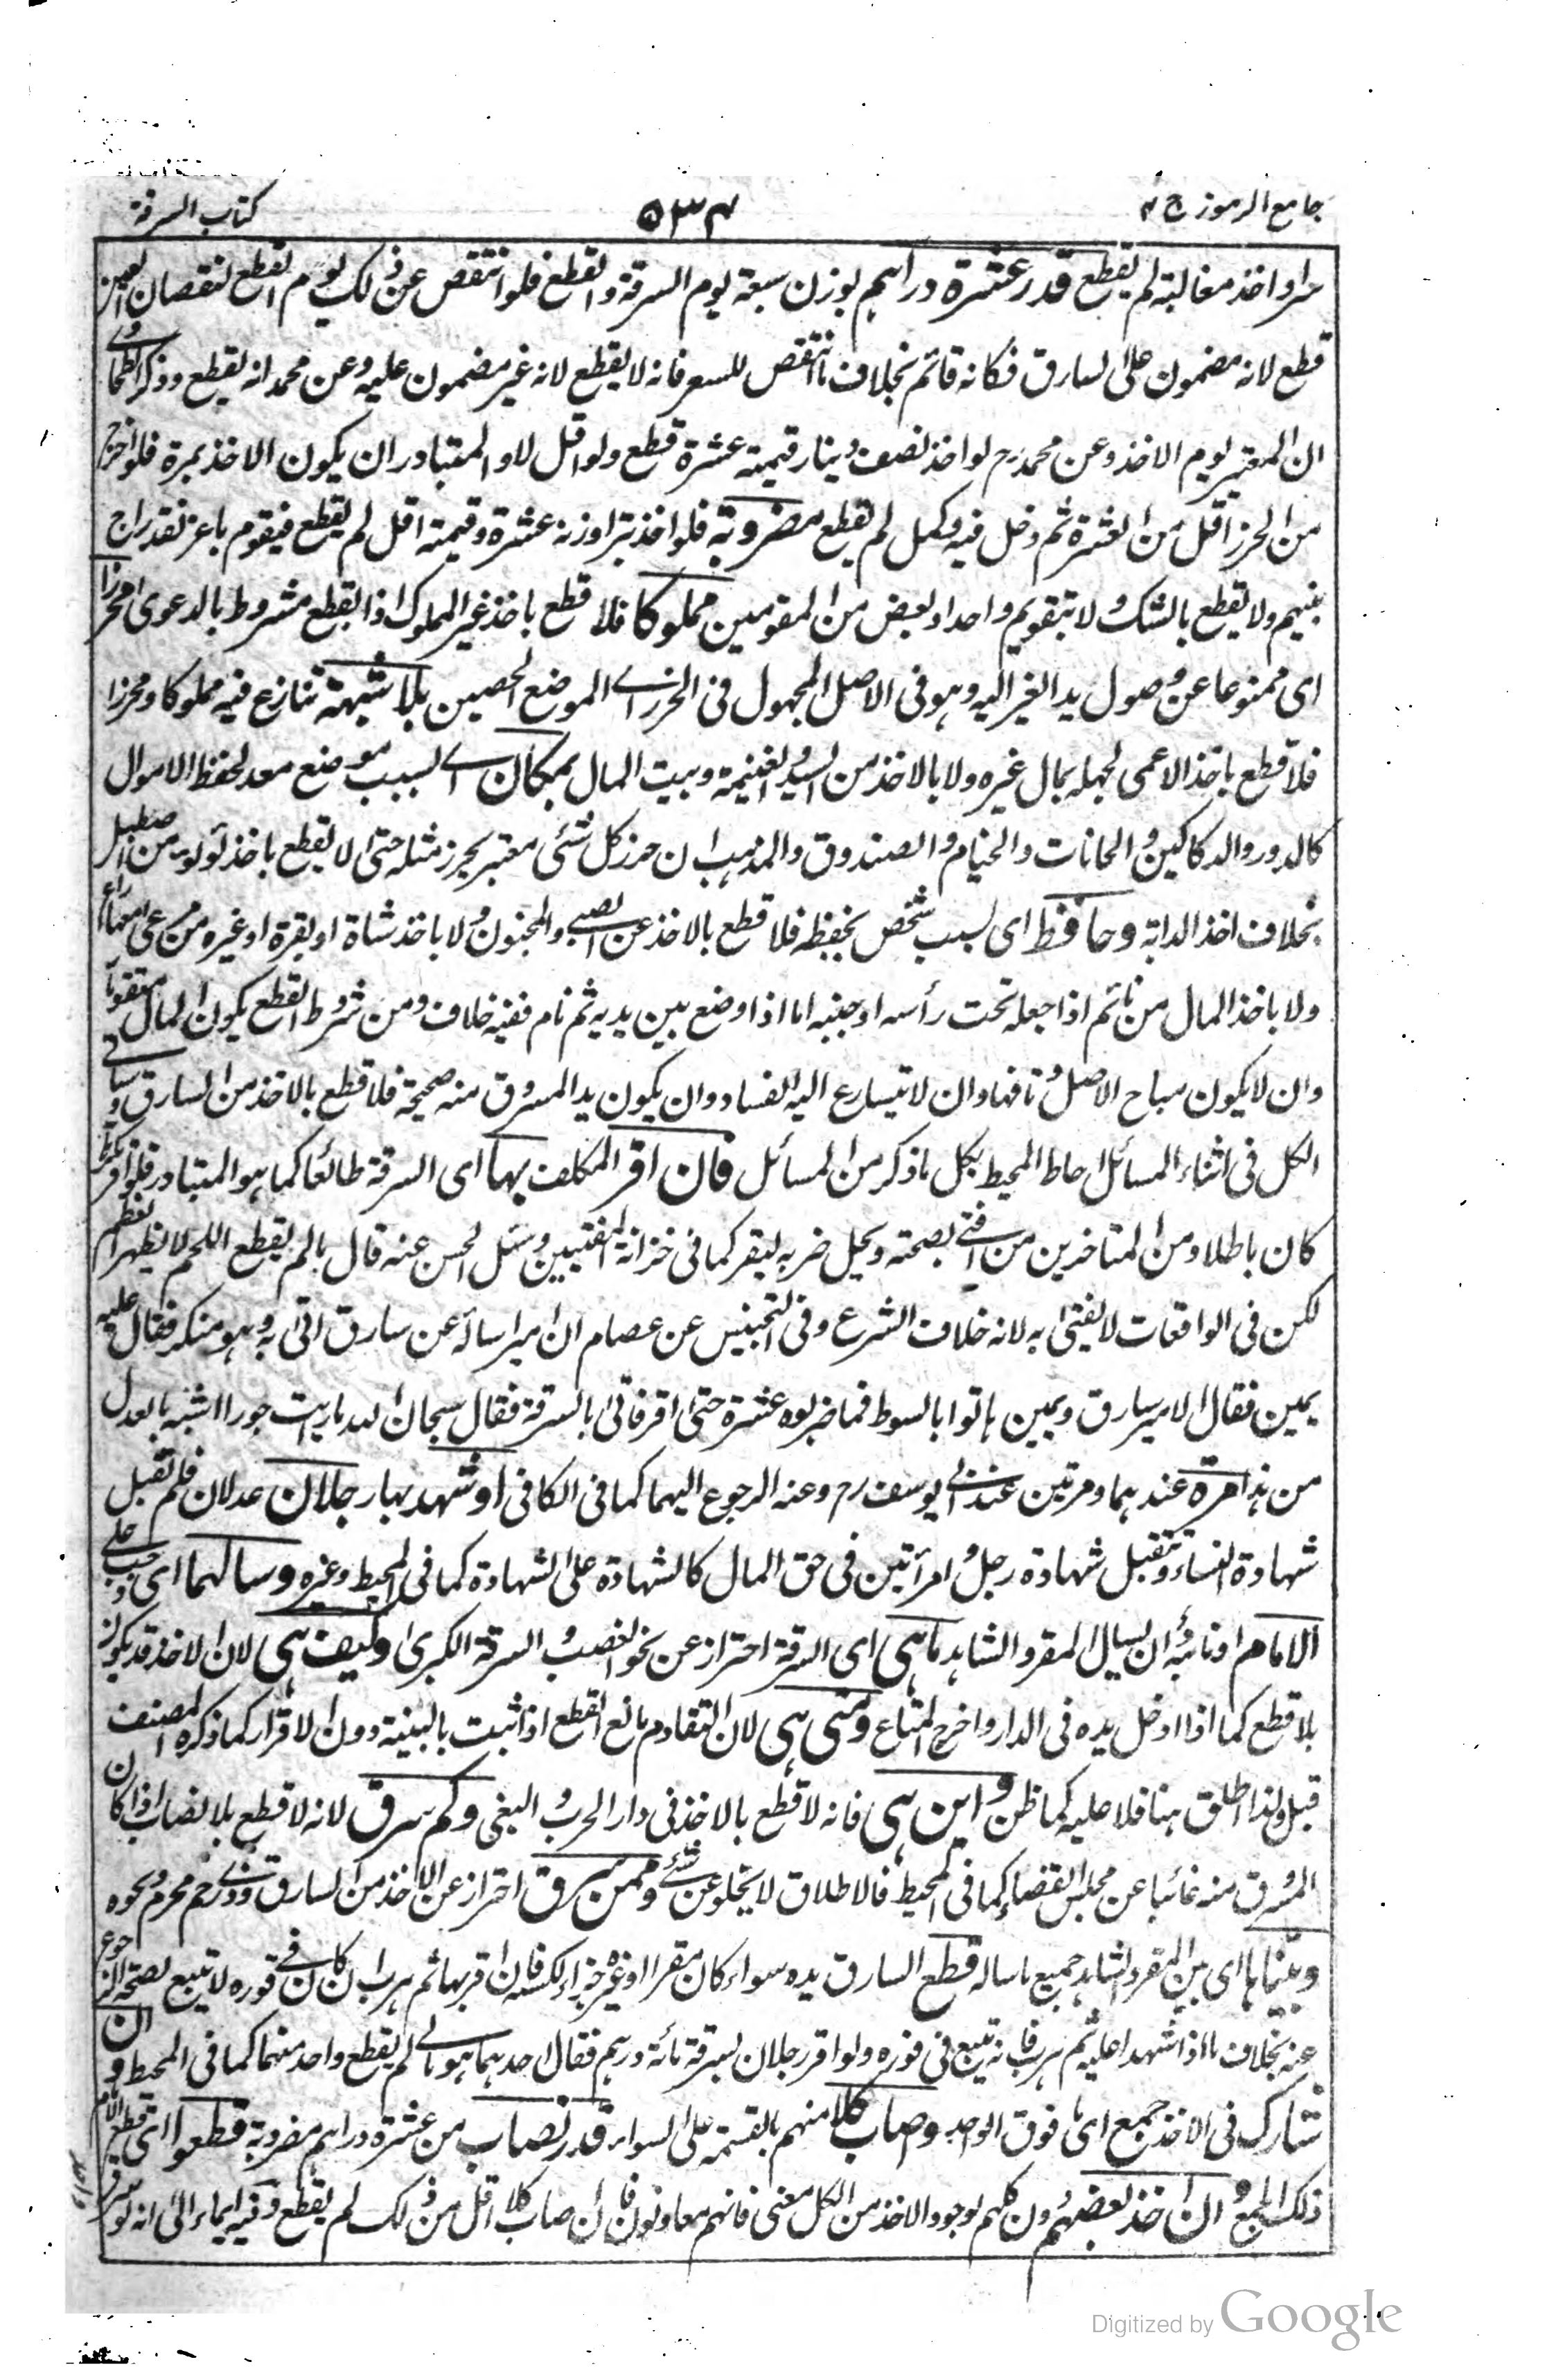 جامع الرموز ج ٢
٥٣٤
كتاب السرقة
سرا واخذ مغالبة لم يقطع قدر عشرة دراهم بوزن سبعة يوم السرقة والقطع فلو انتقص عن ذلك يوم القطع لنقصان العين
قطع لانه مضمون على السارق فكانه قائم بخلاف ما انتقص للسعر فانه لا يقطع لانه غير مضمون عليه وعن محمد انه يقطع وذكر الطحاوي
ان المعتبر يوم الاخذ وعن محمد رح لو اخذ نصف دينار قيمته عشرة قطع ولو اقل لا والمتبادر ان يكون الاخذ بمرة فلو اخرج
من الحرز اقل من العشرة ثم دخل فيه وكمل لم يقطع مضروبة فلو اخذ تبرا وزنه عشرة وقيمته اقل لم يقطع فيقوم باعز نقد راج
بينهم ولا يقطع بالشك ولا بتقويم واحد او بعض من المقومين مملوكا فلا قطع باخذ غير المملوك اذ القطع مشروط بالدعوى محرزا
اى ممنوعا عن وصول يد الغير اليه وهو فى الاصل المجهول فى الحرز اے الموضع الحصين بلا شبهة تنازع فيه مملوكا ومحرزا
فلا قطع باخذ الاعمى لجهله بمال غيره ولا بالاخذ من السيد والغنيمة وبيت المال بمكان اے بسبب موضع معد لحفظ الاموال
كالدور والدكاكين والحانات والخيام والصندوق والمذهب ان حرز كل شئى معتبر بحرز مثله حتى لا يقطع باخذ لؤلؤ من اصطبل
بخلاف اخذ الدابة وحافظ اى بسبب شخص يحفظه فلا قطع بالاخذ عن الصبى والمجنون ولا باخذ شاة او بقرة او غيره من مرعى معها راع
ولا باخذ المال من نائم اذا جعله تحت رأسه او جنبه اما اذا وضع بين يديه ثم نام ففيه خلاف ومن شروط القطع يكون المال متقوما
وان لا يكون مباح الاصل وتافها وان لا يتسارع اليه الفساد وان يكون يد المسروق منه صحيحة فلا قطع بالاخذ من السارق وسياتى
الكل فى اثناء المسائل احاط المحيط بكل ما ذكر من المسائل فان اقر المكلف بها اى السرقة طائعا كما هو المتبادر فلو اقر مكرها
كان باطلا ومن المتاخرين من افتى بصحته ويحل ضربه ليقر كما فى خزانة المفتيين وسئل الحسن عنه قال ما لم يقطع اللحم لا يظهر العظم
لكن فى الواقعات لا يفتى به لانه خلاف الشرع وفى التجنيس عن عصام ان اميرا ساله عن سارق اتى به وهو منكر فقال عليه
يمين فقال الامير سارق ويمين هاتوا بالسوط فما ضربوه عشرة حتى اقر فاتى بالسرقة فقال سبحان الله ما رايت جورا اشبه بالعدل
من هذا مرة عندهما ومرتين عند ابى يوسف رح وعنه الرجوع اليهما كما فى الكافى او شهد بها رجلان عدلان فلم تقبل
شهادة النساء وتقبل شهادة رجل وامرأتين فى حق المال كالشهادة على الشهادة كما فى المحيط وغيره وسالهما اى وجب على
الامام او نائبه ان يسال المقر والشاهد ما هى اى السرقة احتراز عن نحو الغصب والسرقة الكبرى وكيف هى لان الاخذ قد يكون
بلا قطع كما اذا ادخل يده فى الدار واخرج المتاع ومتى هى لان التقادم مانع القطع اذا ثبت بالبينة دون الاقرار كما ذكره المصنف
قبل ولذا اطلق هنا فلا عليه كما ظن واين هى فانه لا قطع بالاخذ فى دار الحرب والبغى وكم سرق لانه لا قطع بلا نصاب اذا كان
المسروق منه غائبا عن مجلس القضاء كما فى المحيط فالاطلاق لا يخلو عن شئے وممن سرق احتراز عن الاخذ من السارق وذى رحم محرم ونحوه
وبيّناها اى بين المقر والشاهد جميع ما ساله قطع السارق يده سواء كان مقرا او غيره جزاء لكسبه فان اقر بها ثم هرب ان كان فى فوره لا يتبع لصحة الرجوع
عنه بخلاف ما اذا شهدا عليه ثم هرب فانه يتبع فى فوره ولو اقر رجلان بسرقة مائة درهم فقال احدهما هو مالى لم يقطع واحد منهما كما فى المحيط وان
تشارك فى الاخذ جمع اى ما فوق الواحد وصاب كلا منهم بالقسمة على السواء قدر نصاب من عشرة دراهم مضروبة قطعوا اى قطع الامام
ذلك الجمع وان اخذ بعضهم دون كلهم لوجود الاخذ من الكل معنى فانهم معاونون فان صاب كلا اقل من ذلك لم يقطع وفيه ايماء الى انه لو سرق
Digitized by Google